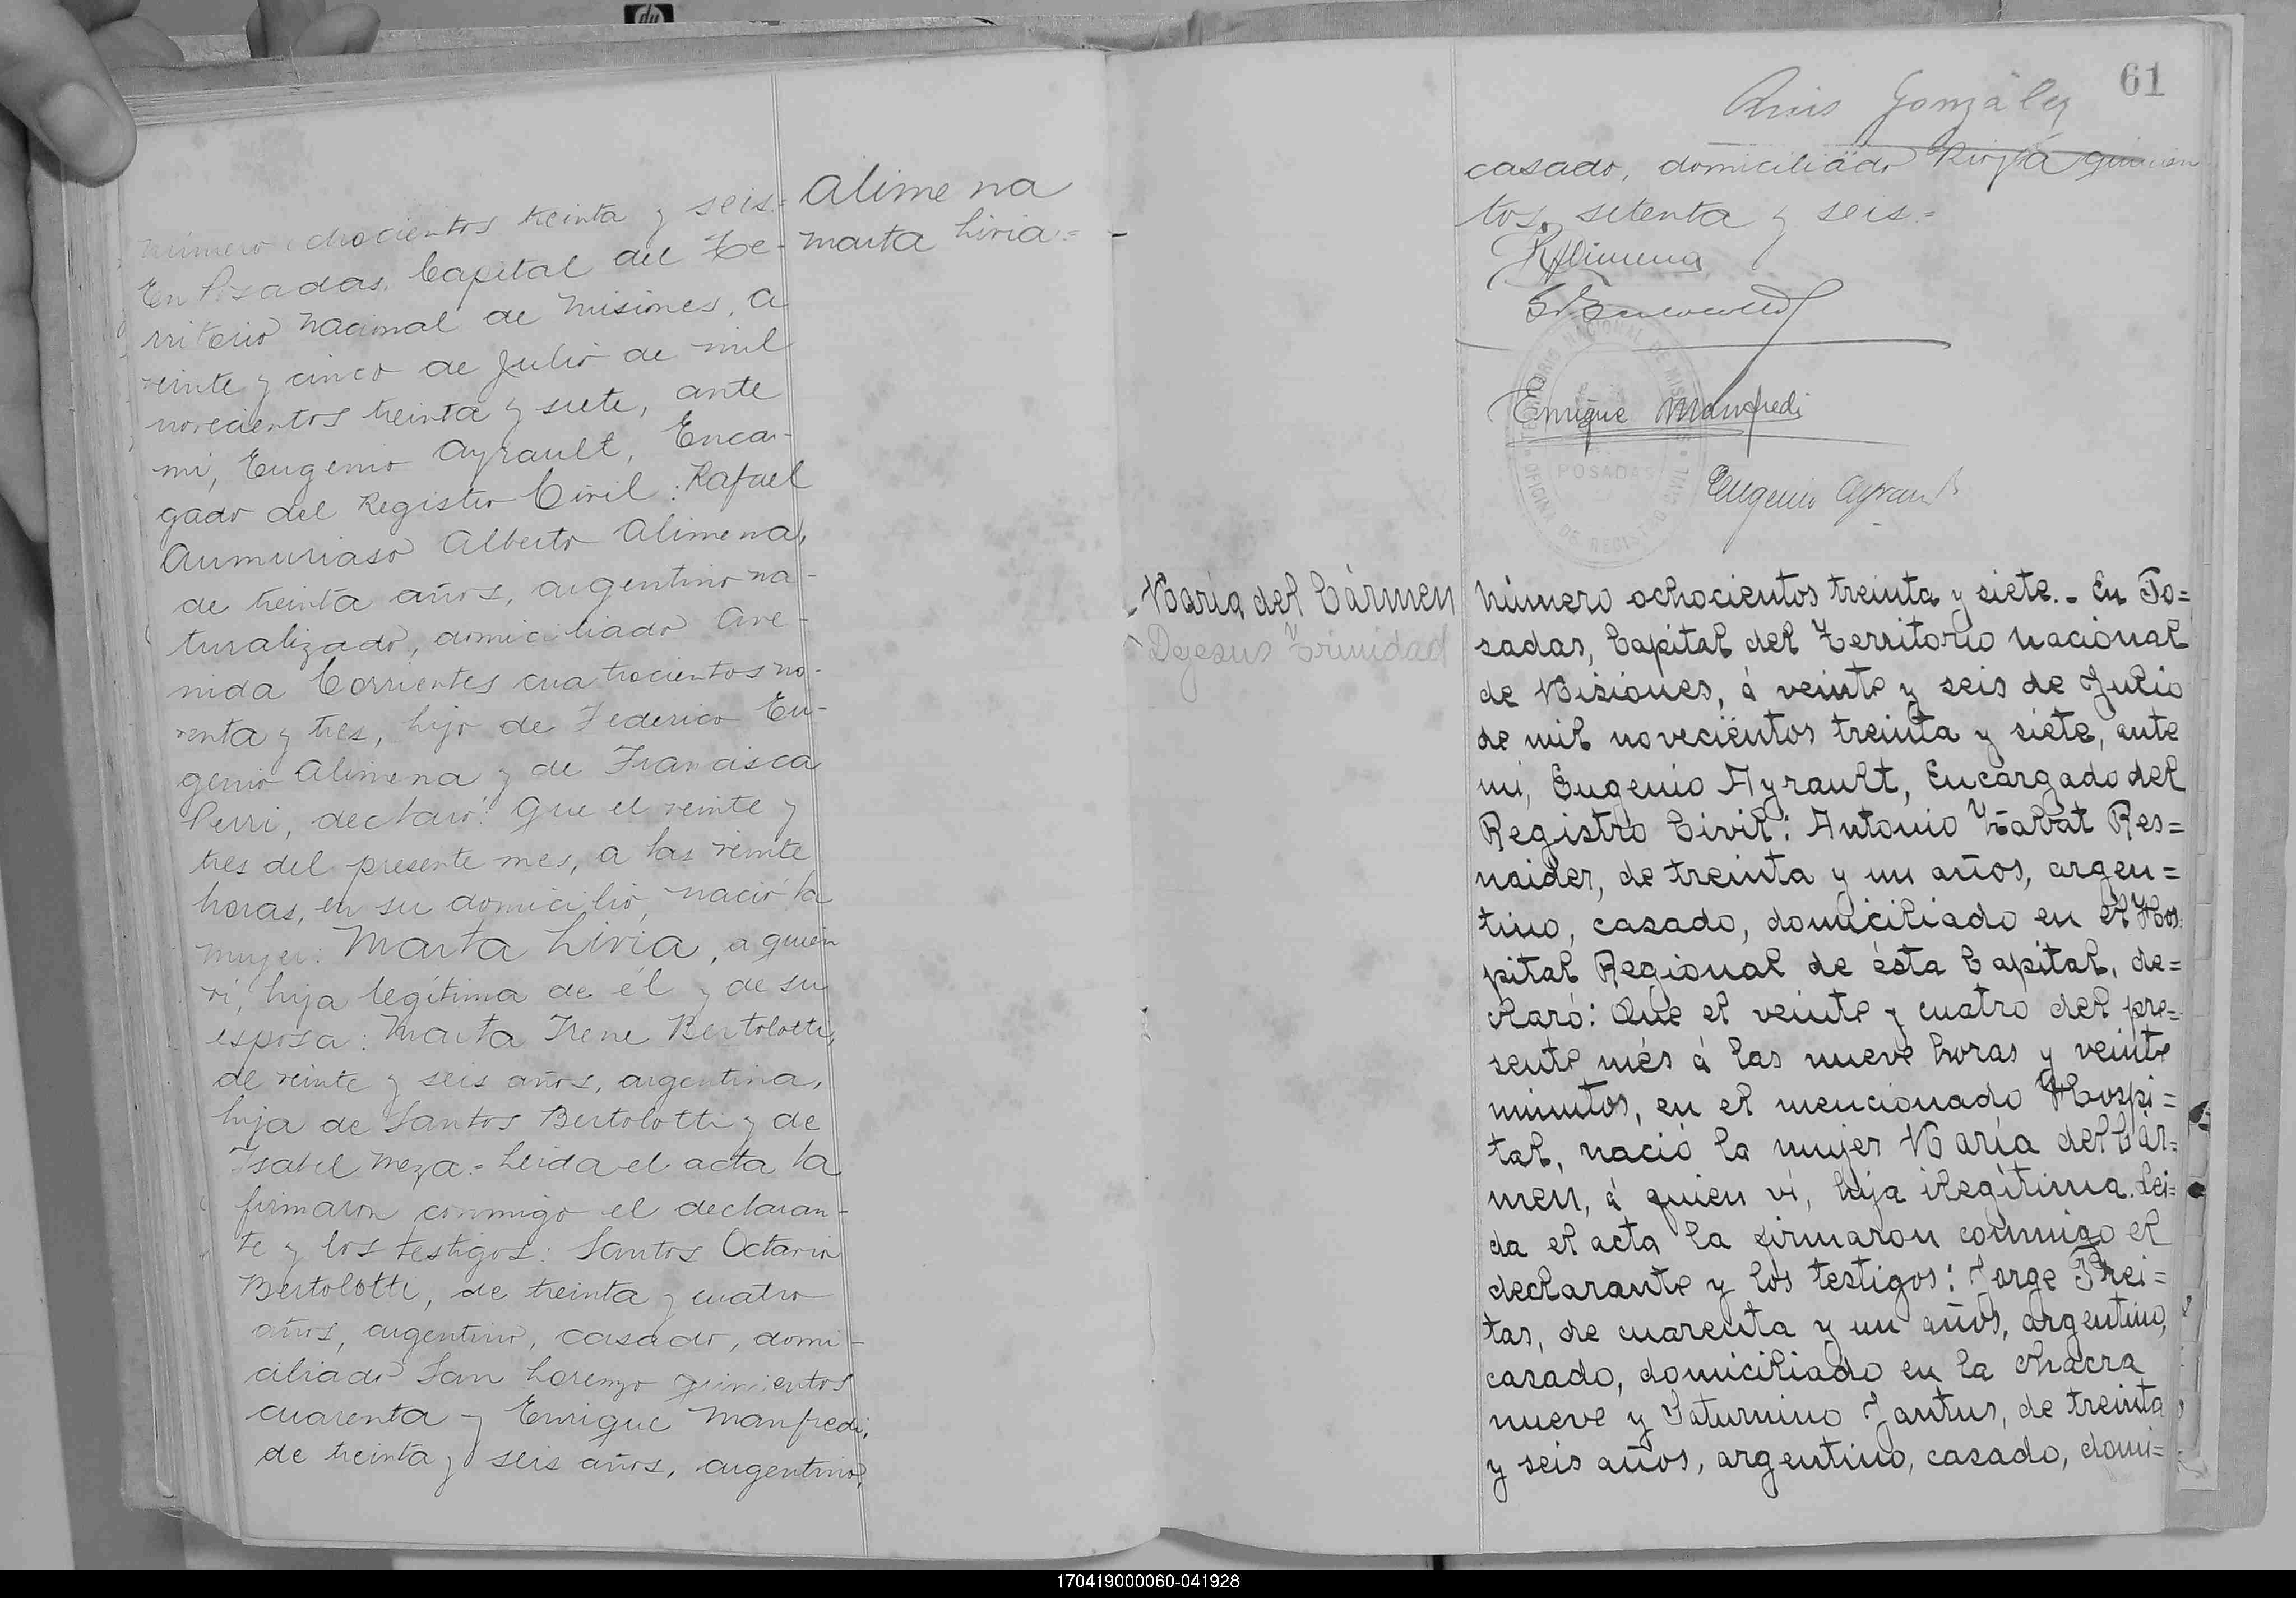 Alimena
Marta Livia=
número ochocientos treinta y seis.=
En Posadas, Capital del Te-
rritorio nacional de misiones, a
veinte y cinco de Julio de mil
novecientos treinta y siete, ante
mi, Eugenio Ayrault, Encar-
gado del Registro Civil: Rafael
Alberto Alimena,
de treinta años, argentino na-
turalizado, domiciliado Ave-
nida Corrientes cuatrocientos no-
venta y tres, hijo de Federico Eu-
genio Alimena y de Francisca
Perri, declaró: Que el veinte y
tres del presente mes, a las veinte
horas, en su domicilio, nació la
mujer: Marta Livia, a quien
vi, hija legítima de él y de su
esposa: Marta Irene Bertolotti,
de veinte y seis años, argentina,
hija de Santos Bertolotti y de
Isabel Meza.= Leida el acta la
firmaron conmigo el declaran-
te y los testigos: Santos Octavio
Bertolotti, de treinta y cuatro
años, argentino, casado, domi-
ciliado San Lorenzo quinientos
cuarenta y Enrique Manfredi,
de treinta y seis años, argentino,
61
González
casado, domiciliado Rioja quinien
tos setenta y seis.=
RAlimena
Enrique Manfredi
TERRITORIO NACIONAL DE MISIONES
POSADAS
OFICINA DE REGISTRO CIVIL
Eugenio Ayrault
María del Cármen
Dejesus Trinidad
Número ochocientos treinta y siete.- En Po=
sadas, Capital del Territorio nacional
de Misiones, á veinte y seis de Julio
de mil novecientos treinta y siete, ante
mi, Eugenio Ayrault, Encargado del
Registro Civil: Antonio Res=
naider, de treinta y un años, argen=
tino, casado, domiciliado en el Hos
pital Regional de ésta Capital, de=
claró: Que el veinte y cuatro del pre=
sente més á las nueve horas y veinte
minutos, en el mencionado Hospi=
tal, nació la mujer María del Cár=
men, á quien ví, hija ilegítima. Lei=
da el acta la firmaron conmigo el
declarante y los testigos: Jorge Frei=
tas, de cuarenta y un años, argentino,
casado, domiciliado en la chacra
nueve y Saturnino Jantus, de treinta
y seis años, argentino, casado, domi=
170419000060-041928